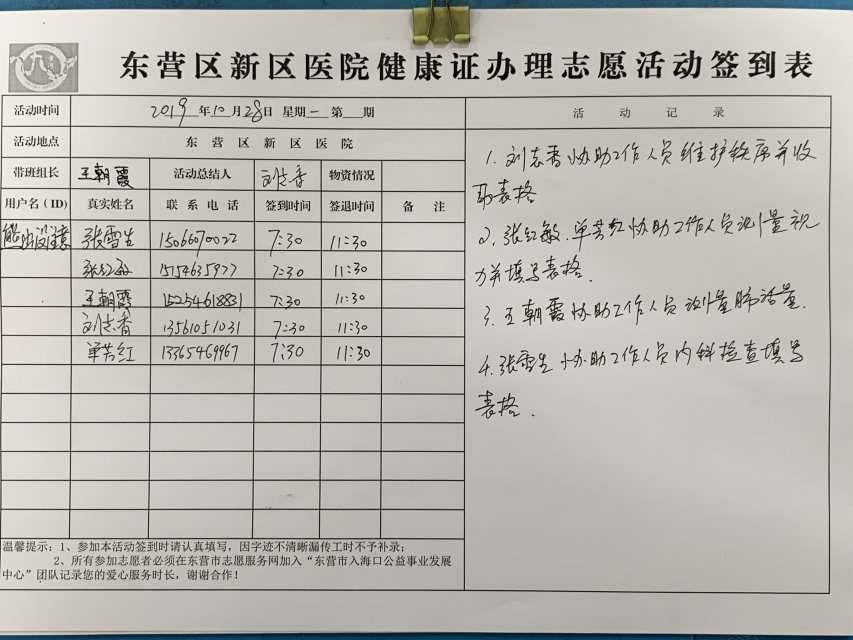 东营区新区医院健康证办理志愿活动签到表
活动时间 2019年10月28日 星期一 第 期
活动地点 东营区新区医院
带班组长 王朝霞 活动总结人 刘志香 物资情况
用户名(ID) 真实姓名 联系电话 签到时间 签退时间 备注
张雪生 15066070022 7:30 11:30
张红敏 15154635977 7:30 11:30
王朝霞 15254618831 7:30 11:30
刘志香 13561051031 7:30 11:30
单芳红 13365469967 7:30 11:30
温馨提示:1、参加本活动签到时请认真填写,因字迹不清晰漏传工时不予补录;
2、所有参加志愿者必须在东营市志愿服务网加入“东营市入海口公益事业发展
中心”团队记录您的爱心服务时长,谢谢合作!
活动记录
1. 刘志香协助工作人员维护秩序并收
取表格
2. 张红敏.单芳红协助工作人员测量视
力并填写表格.
3. 王朝霞协助工作人员测量肺活量.
4. 张雪生协助工作人员内科检查填写
表格.